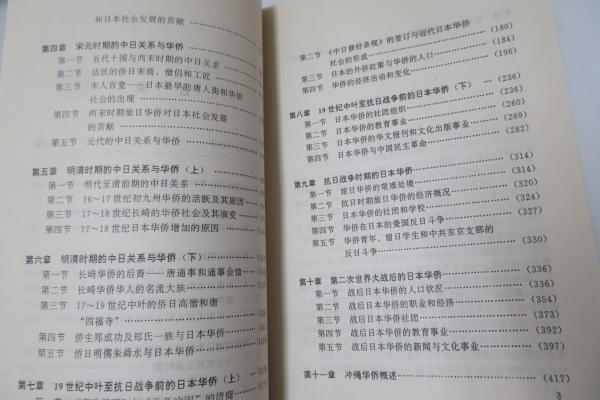 和日本社会发展的贡献
第四章 宋元时期的中日关系与华侨
第一节 五代十国与两宋时期的中日关系
第二节 活跃的侨日宋商、僧侣和工匠
第三节 宋人百堂——日本最早的唐人街和华侨
社会的出现
第四节 两宋时期旅日华侨对日本社会发展
的贡献
第五节 元代的中日关系与华侨
第五章 明清时期的中日关系与华侨(上)
第一节 明代至清前期的中日关系
第二节 16~17世纪初九州华侨的活跃及其原因
第三节 17~18世纪长崎的华侨社会及其演变
第四节 17~18世纪日本华侨增加的原因
第六章 明清时期的中日关系与华侨(下)
第一节 长崎华侨的后裔——唐通事和通事会馆
第二节 长崎华侨华人的名流大族
第三节 17~19世纪中叶的侨日高僧和唐
“四福寺”
第四节 侨生郑成功及郑氏一族与日本华侨
第五节 侨日明儒朱舜水与日本华侨
第七章 19世纪中叶至抗日战争前的日本华侨(上)
第二节 《中日修好条规》的签订与近代日本华侨
社会的形成 (180)
第三节 日本的外侨政策与华侨的人口 (184)
第四节 华侨的经济活动和变化 (196)
第八章 19世纪中叶至抗日战争前的日本华侨(下) (236)
第一节 日本华侨的社团组织 (236)
第二节 日本华侨的教育事业 (260)
第三节 日本华侨的华文报刊和文化出版事业 (269)
第四节 日本华侨与中国民主革命 (282)
第九章 抗日战争时期的日本华侨 (314)
第一节 旅日华侨的艰难处境 (314)
第二节 抗日时期旅日华侨的经济概况 (320)
第三节 日本华侨的社团和学校 (324)
第四节 华侨在日本的爱国反日斗争 (327)
第五节 华侨青年、留日学生和中共东京支部的
反日斗争 (330)
第十章 第二次世界大战后的日本华侨 (336)
第一节 战后日本华侨的人口状况 (336)
第二节 战后日本华侨的职业和经济 (354)
第三节 战后日本华侨社团 (373)
第四节 战后日本华侨的教育事业 (392)
第五节 战后日本华侨的新闻与文化事业 (397)
第十一章 冲绳华侨概述 (417)
3